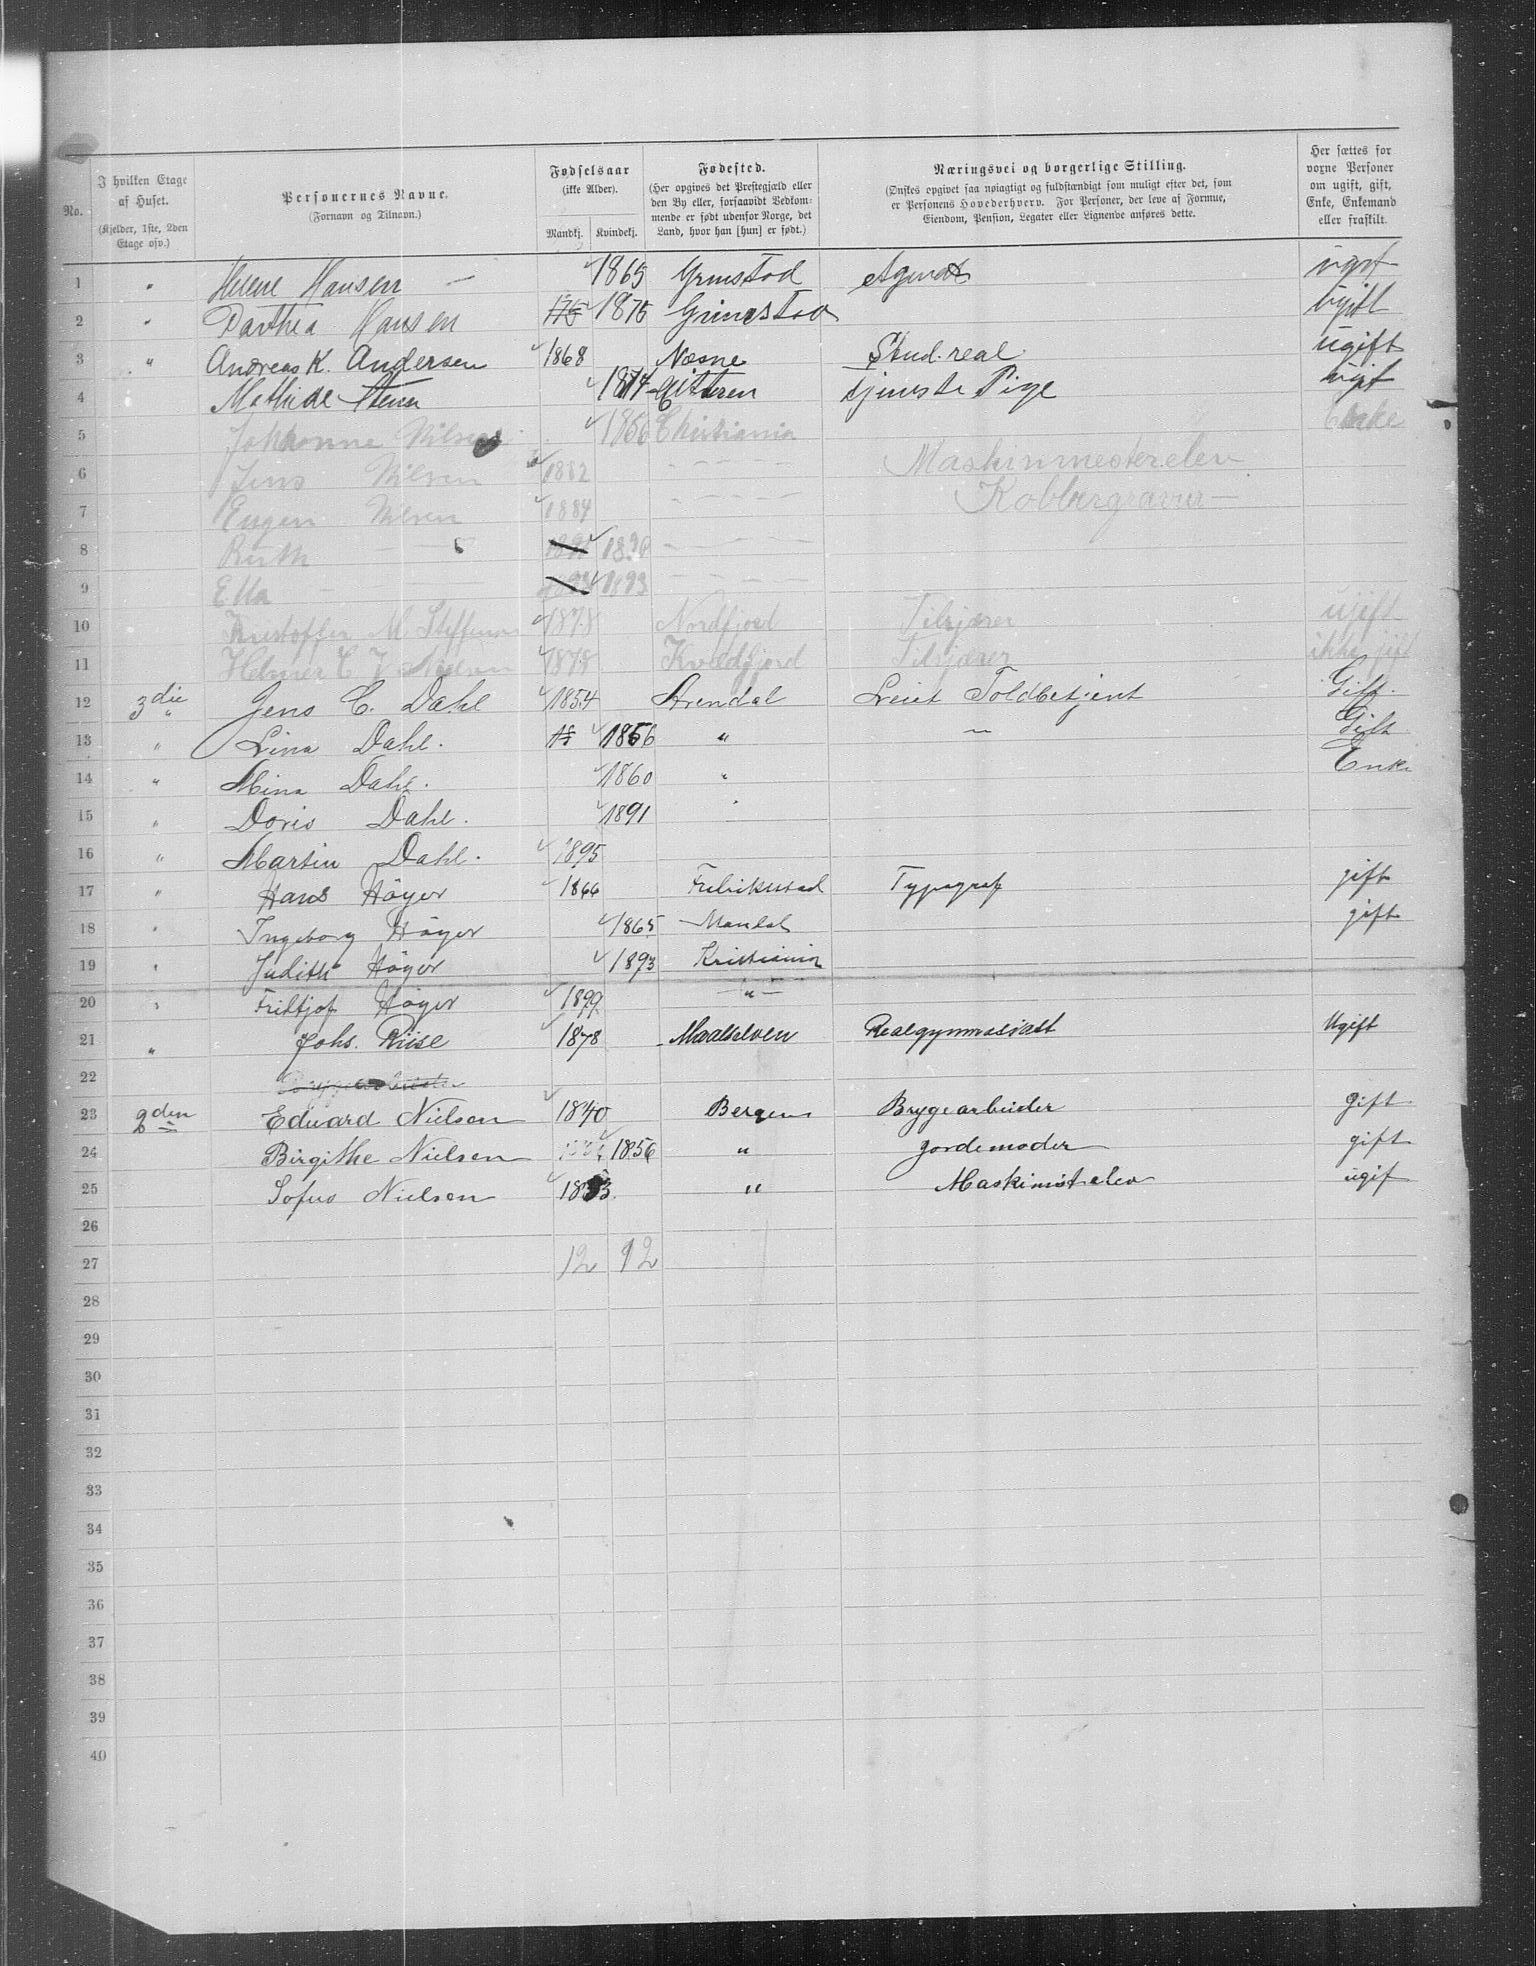 No. | I hvilken Etage af Huset. (Kjelder, 1ste, 2den Etage osv.) | Personernes Navne. (Fornavn og Tilnavn.) | Fødselsaar (ikke Alder). Mandkj. Kvindekj. | Fødested. (Her opgives det Prestegjæld eller den By eller, forsaavidt Vedkommende er født udenfor Norge, det Land, hvor han [hun] er født.) | Næringsvei og borgerlige Stilling. (Ønskes opgivet saa nøiagtigt og fuldstændigt som muligt efter det, som er Personens Hovederhverv. For Personer, der leve af Formue, Eiendom, Pension, Legater eller Lignende anføres dette. | Her sættes for voxne Personer om ugift, gift, Enke, Enkemand eller fraskilt.
1 " Helene Hansen — 1865 Grimstad ugift
2 " Parthea Hansen 1875 Grimstad ugift
3 " Andreas K. Andersen 1868 Næsne Stud. real. ugift
4 Mathide Steen 1874 Hitteren tjeneste Pige ugift
5 Johanne Nilsen 1856 Christiania Enke
6 Jens Nilsen 1882 — — — — Maskinmesterelev
7 Eugen Nilsen 1884 — — — — Kobbergravør —
8 Ruth — — 1890 — — — —
9 Ella — — 1893 — — — —
10 Kristoffer M Steffensen 1878 Nordfjord Tilsjærer ugift
11 Helmer C J Nielsen 1878 Kvædfjord Tilsjærer ikke gift
12 3die " Jens C. Dahl 1854 Arendal Leiet Toldbetjent Gift.
13 " Lina Dahl. 1856 " — Gift
14 " Mina Dahl. 1860 " Enke
15 " Doris Dahl. 1891 "
16 " Martin Dahl. 1895
17 " Hans Höyer 1866 Fredrikstad Typograf gift
18 " Ingeborg Höyer 1865 Mandal gift
19 " Judith Höyer 1893 Kristiania
20 " Fridtjof Höyer 1899 — " —
21 " Johs. Riise 1878 Maalselven Realgymnasiast Ugift
22
23 2den Eduard Nielsen 1840 Bergen Brygearbeider gift
24 Birgithe Nielsen 1856 " Jordemoder gift
25 Sofus Nielsen 1883 " Maskinistelev ugif
26
27 12 12
28
29
30
31
32
33
34
35
36
37
38
39
40